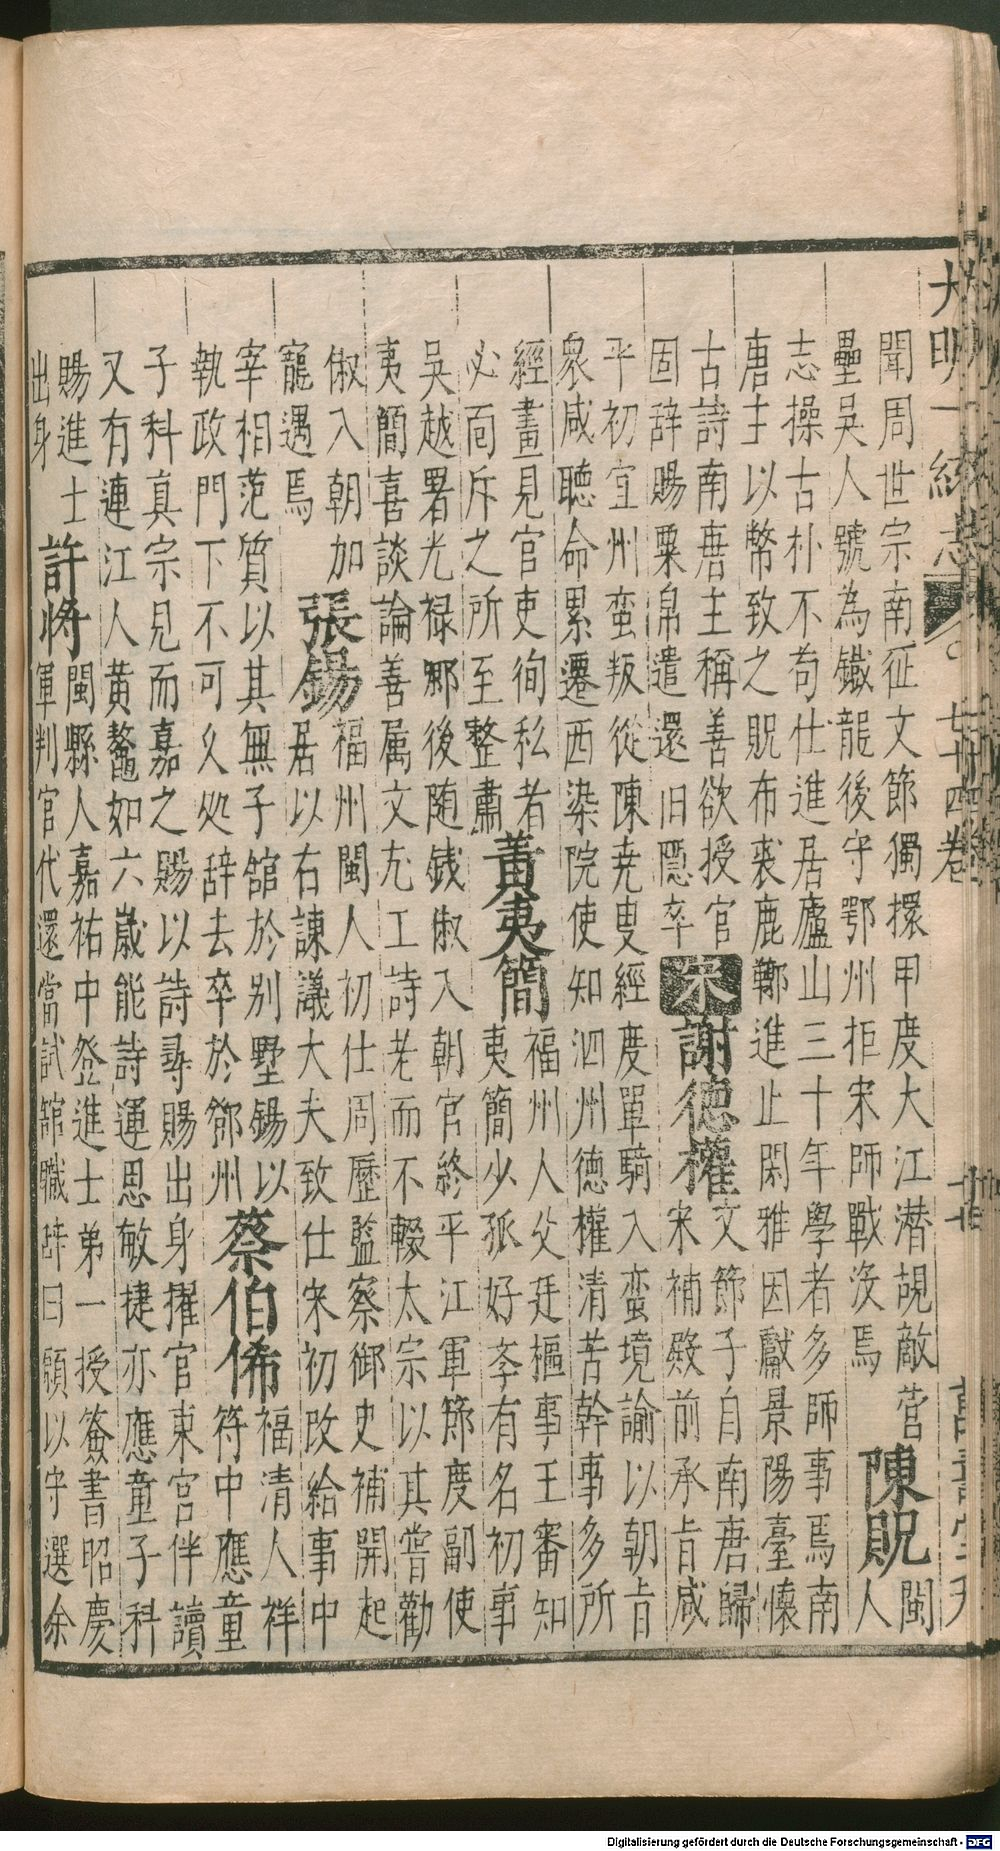 大明一統志 七十四卷
聞周世宗南征文節獨擐甲度大江潜覘敵營
陳貺
閩
壘吴人號為鐵龍後守鄂州拒宋師戰没焉
人
志操古朴不苟仕進居廬山三十年學者多師事焉南
唐主以幣致之貺布裘鹿鞹進止閑雅因獻景陽臺懐
古詩南唐主稱善欲授官
固辞賜粟帛遣還旧隠卒
宋
謝德權
文節子自南唐歸
宋補殿前承㫖咸
平初宜州蛮叛從陳尭叟經度單騎入蛮境諭以朝㫖
衆咸聽命累遷西染院使知泗州德權清苦幹事多所
經畫見官吏徇私者
必面斥之所至整肅
黄夷簡
福州人父廷樞事王審知
夷簡少孤好斈有名初事
吴越署光禄卿後随錢俶入朝官終平江軍節度副使
夷簡喜談論善属文尤工詩老而不輟太宗以其嘗勸
俶入朝加
寵遇焉
張錫
福州閩人初仕周歴監察御史補開起
居以右諫議大夫致仕宋初改給事中
宰相范質以其無子舘於别墅錫以
執政門下不可久处辞去卒於鄧州
蔡伯俙
福清人祥
符中應童
子科真宗見而嘉之賜以詩尋賜出身擢官東宫伴讀
又有連江人黄鼇如六歳能詩運思敏捷亦應童子科
賜進士
出身
許将
閩縣人嘉祐中登進士弟一授簽書昭慶
軍判官代還當試舘職辞曰願以守選余
Digitalisierung gefördert durch die Deutsche Forschungsgemeinschaft - DFG